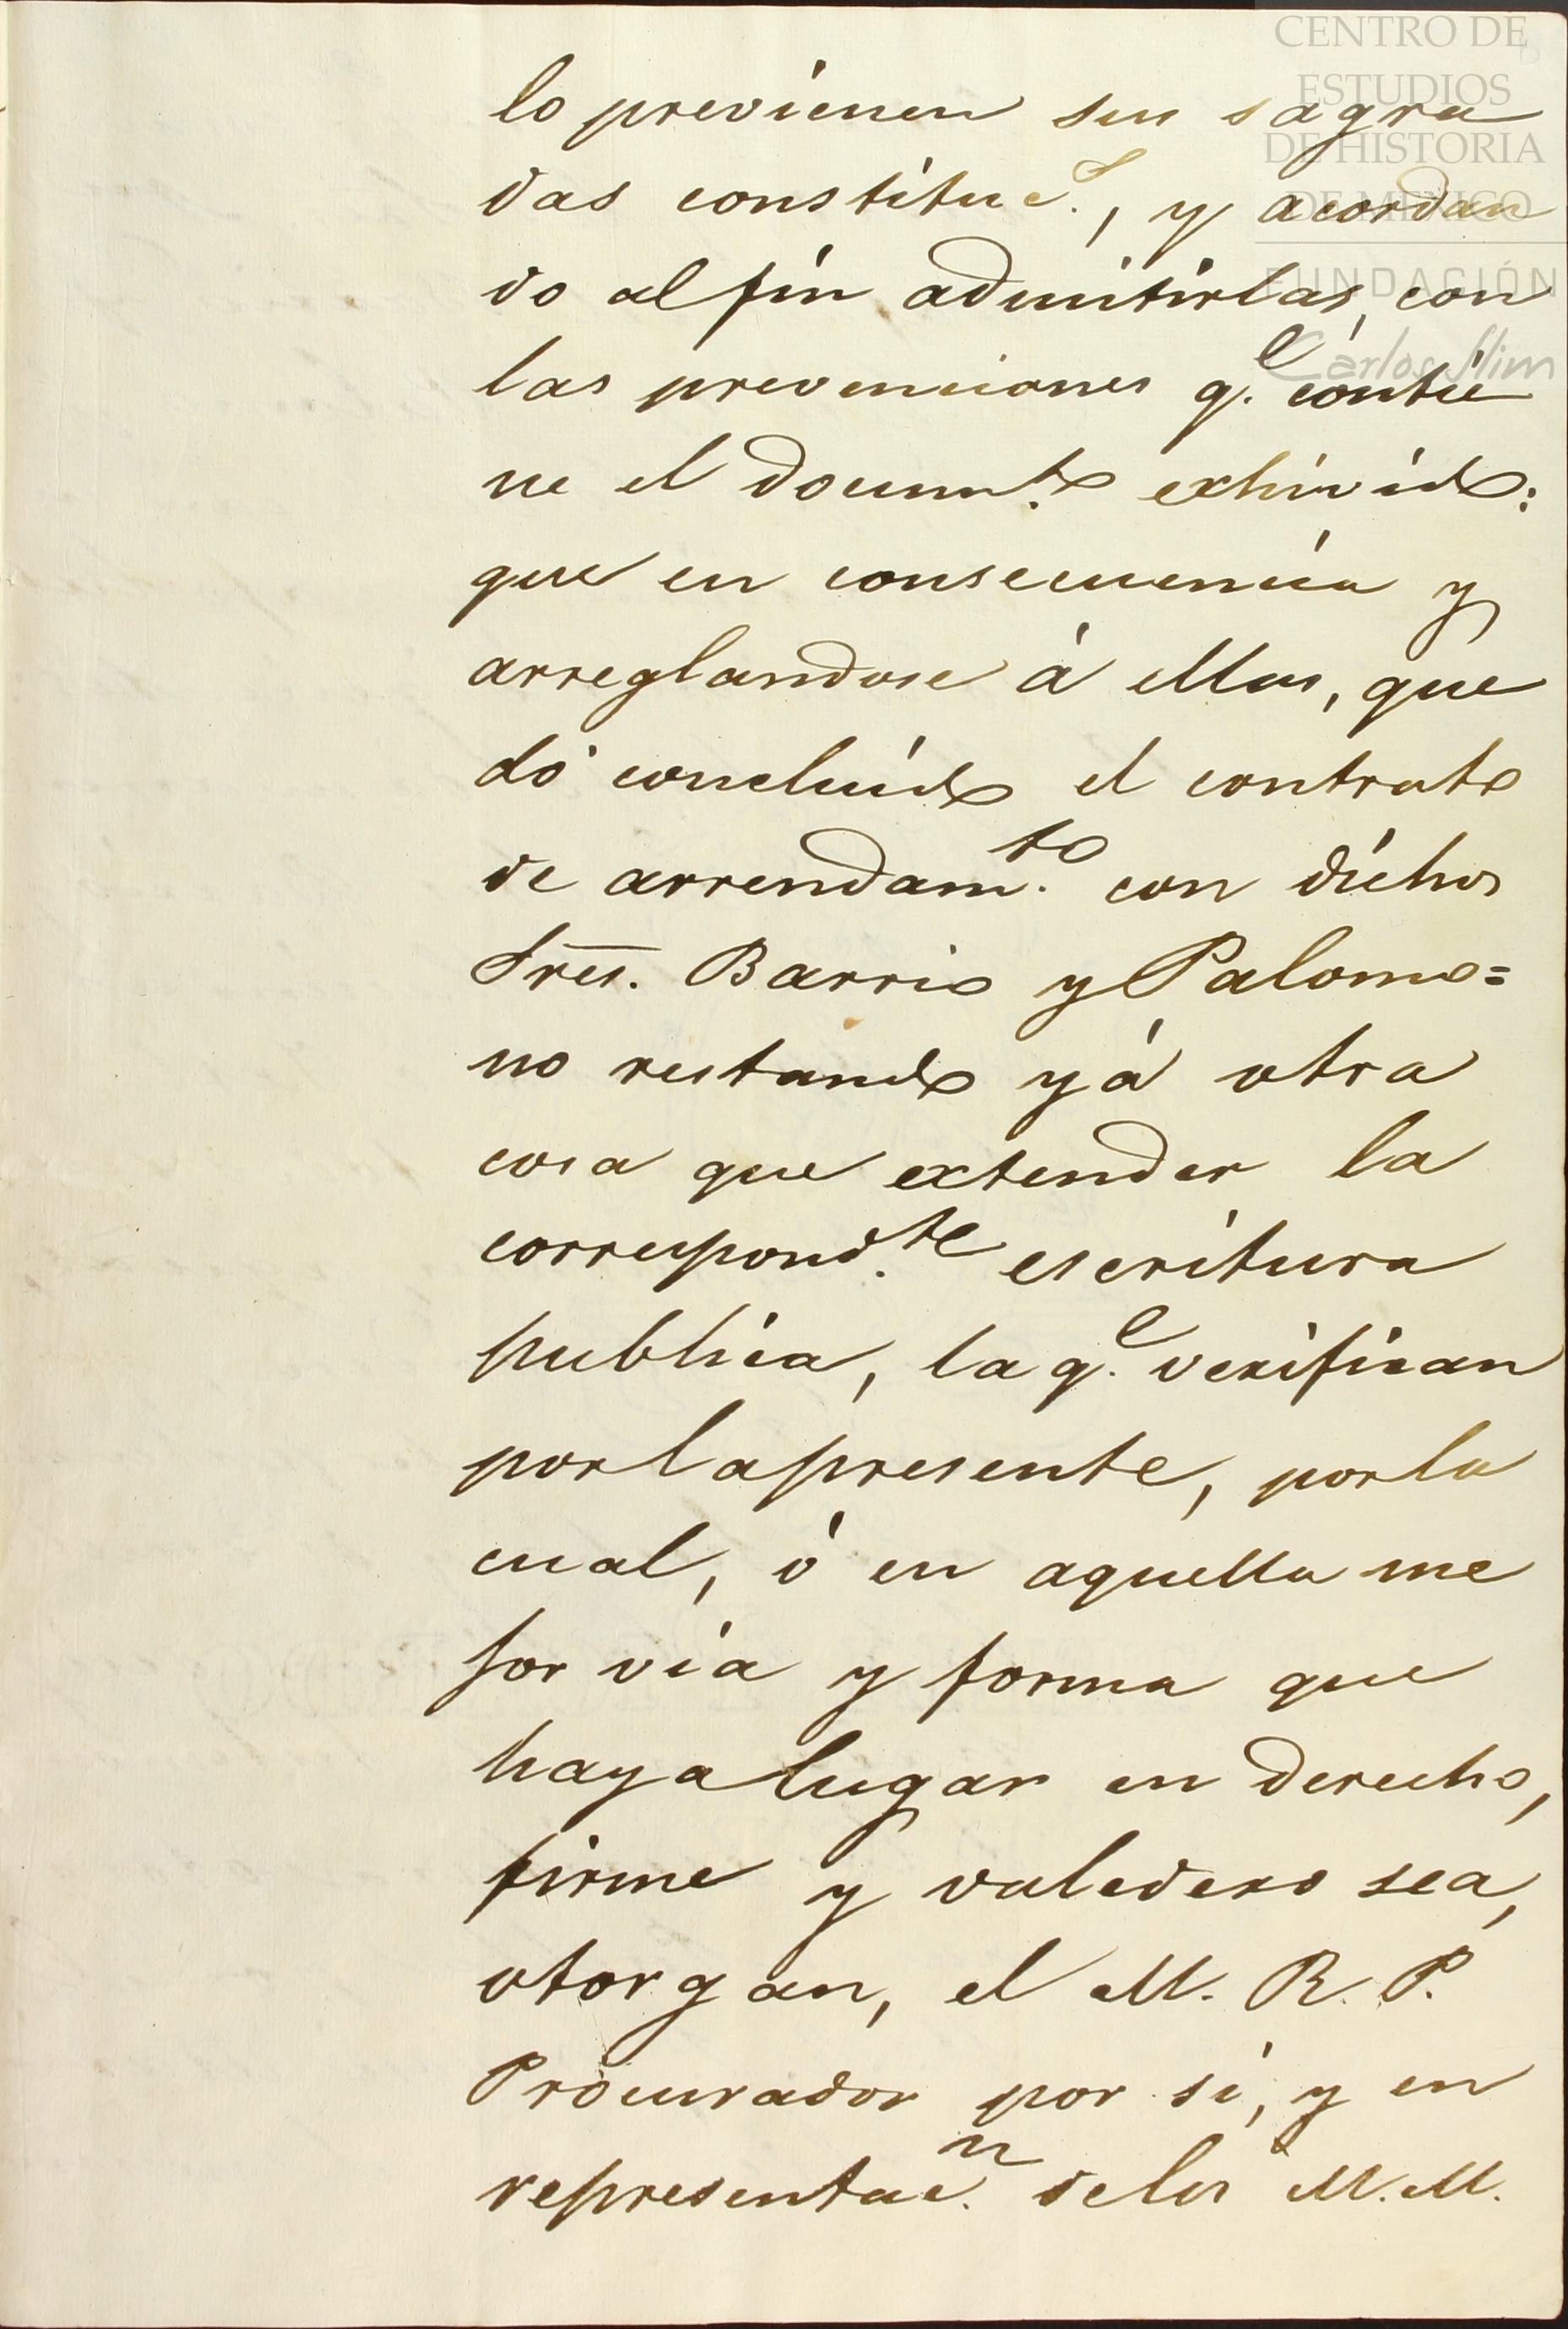 CENTRO DE
ESTUDIOS
DE HISTORIA
DE MÉXICO
FUNDACIÓN
Carlos Slim
lo previenen sus sagra
das constituc.s, y acordan
do al fin admitirlas, con
las prevenciones q.e contie
ne el docum.to exhivido:
que en consecuencia y
arreglandose á ellas, que
dó concluido el contrato
de arrendam.to con dichos
Sres. Barrio y Palomo=
no restando yá otra
cosa que extender la
correspond.te escritura
publica, la q.e verifican
por la presente, por la
cual, ó en aquella me
jor via y forma que
haya lugar en derecho,
firme y valedero sea,
otorgan, el M. R. P.
Procurador por sí, y en
representac.n de los M. M.